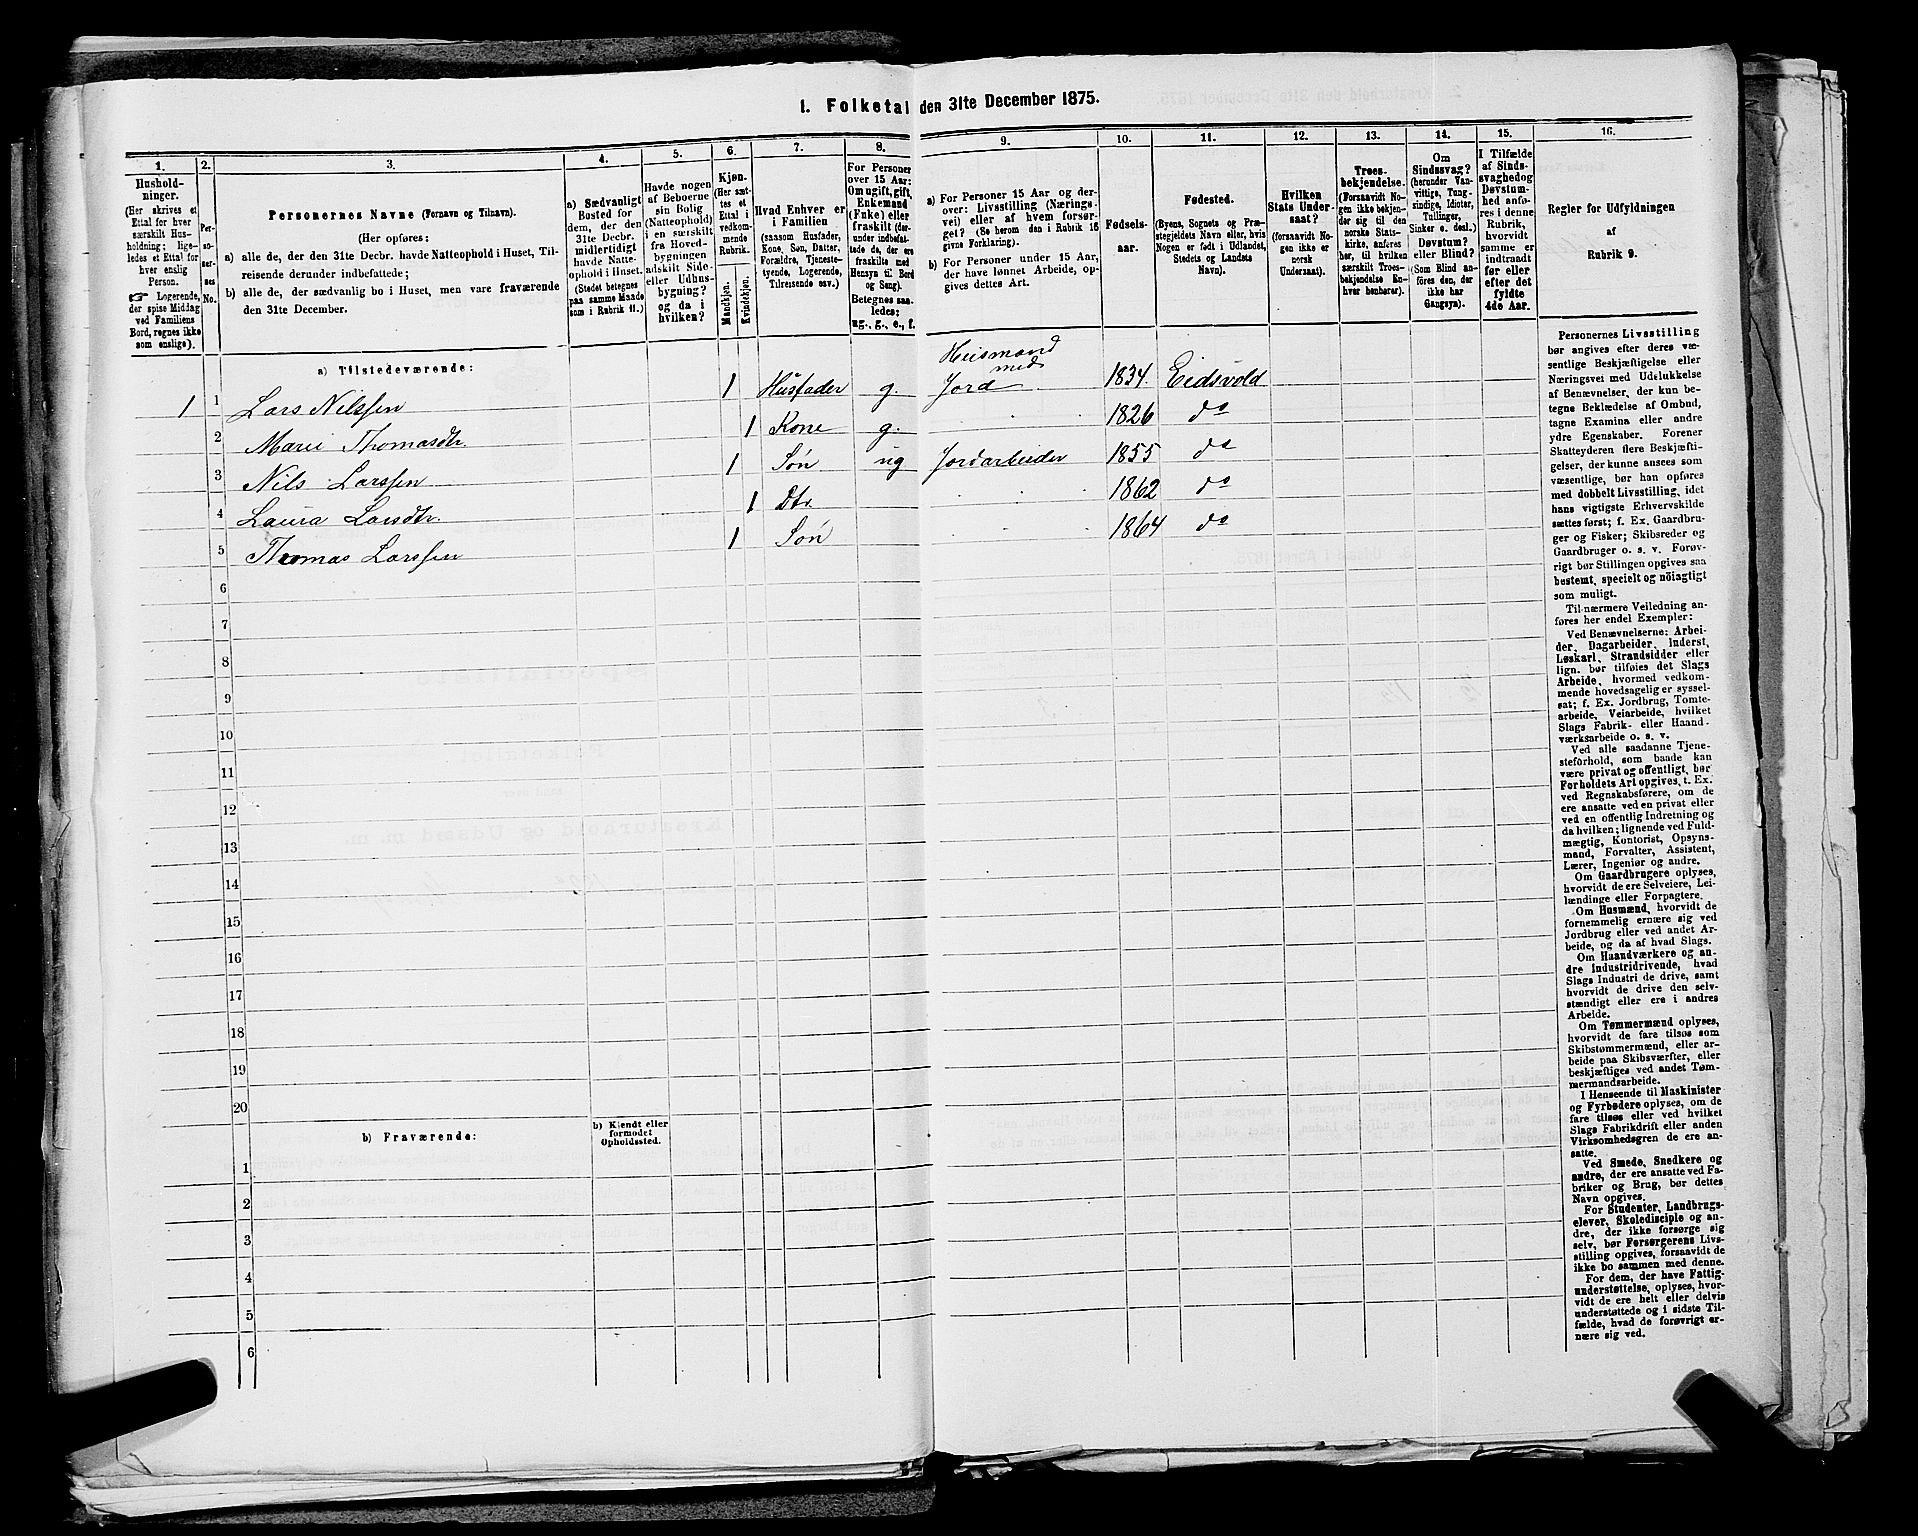 1. Folketal den 31te December 1875.
1.
2.
3.
4.
5.
6.
7.
8.
9.
10.
11.
12.
13.
14.
15.
16.
Hushold-
ninger.
(Her skrives et
Ettal for hver
særskilt Hus-
holdning; lige-
ledes et Ettal for
hver enslig
Person.
☞ Logerende,
der spise Middag
ved Familiens
Bord, regnes ikke
som enslige).
Per-
so-
ner-
nes
No.
Personernes Navne (Fornavn og Tilnavn).
(Her opføres:
a) alle de, der den 31te Decbr. havde Natteophold i Huset, Til-
reisende derunder indbefattede;
b) alle de, der sædvanlig bo i Huset, men vare fraværende
den 31te December.
a) Sædvanligt
Bosted for
dem, der den
31te Decbr.
midlertidigt
havde Natte-
ophold i Huset.
(Stedet betegnes
paa samme Maade
som i Rubrik 11.)
Havde nogen
af Beboerne
sin Bolig
(Natteophold)
i en særskilt
fra Hoved-
bygningen
adskilt Side-
eller Udhus-
bygning?
og da i
hvilken?
Kjøn.
(Her sæt-
tes et
Ettal i
vedkom-
mende
Rubrik.
Mandkjøn.
Kvindekjøn.
Hvad Enhver er
i Familien
(saasom Husfader,
Kone, Søn, Datter,
Forældre, Tjeneste-
tyende, Logerende,
Tilreisende osv.)
For Personer
over 15 Aar:
Om ugift, gift,
Enkemand
(Enke) eller
fraskilt (der-
under indbefat-
tede de, der ere
fraskilte med
Hensyn til Bord
og Seng).
Betegnes saa-
ledes:
ug., g., e., f.
a) For Personer 15 Aar og der-
over: Livsstilling (Nærings-
vei) eller af hvem forsør-
get? (Se herom den i Rubrik 16
givne Forklaring).
b) For Personer under 15 Aar,
der have lønnet Arbeide, op-
gives dettes Art.
Fødsels-
aar.
Fødested.
(Byens, Sognets og Præ-
stegjeldets Navn eller, hvis
Nogen er født i Udlandet,
Stedets og Landets
Navn).
Hvilken
Stats Under-
saat?
(forsaavidt No-
gen ikke er
norsk
Undersaat).
Troes-
bekjendelse.
(Forsaavidt No-
gen ikke bekjen-
der sig til den
norske Stats-
kirke, anføres
her, til hvilken
særskilt Troes-
bekjendelse En-
hver henhører).
Om
Sindssvag?
(herunder Van-
vittige, Tung-
sindige, Idioter,
Tullinger,
Sinker o. desl.)
Døvstum?
eller Blind?
(Som Blind an-
føres den, der
ikke har
Gangsyn).
I Tilfælde
af Sinds-
svaghed og
Døvstum-
hed anfø-
res i denne
Rubrik,
hvorvidt
samme er
indtraadt
før eller
efter det
fyldte
4de Aar.
Regler for Udfyldningen
af
Rubrik 9.
a) Tilstedeværende:
1 1 Lars Nilssen 1 Husfader g. Huusmand med Jord 1834. Eidsvold
2 Marie Thomasdtr. 1 Kone g. 1826 do
3 Nils Larssen 1 Søn ug Jordarbeider 1855 do
4 Laura Larsdtr. 1 Dtr. 1862 do
5 Thomas Larssen 1 Søn 1864 do
6
7
8
9
10
11
12
13
14
15
16
17
18
19
20
b) Fraværende:
b) Kjendt eller
formodet
Opholdssted.
1
2
3
4
5
6
Personernes Livsstilling
bør angives efter deres væ-
sentlige Beskjæftigelse eller
Næringsvei med Udelukkelse
af Benævnelser, der kun be-
tegne Beklædelse af Ombud,
tagne Examina eller andre
ydre Egenskaber. Forener
Skatteyderen flere Beskjæfti-
gelser, der kunne ansees som
væsentlige, bør han opføres
med dobbelt Livsstilling, idet
hans vigtigste Erhvervskilde
sættes først; f. Ex. Gaardbru-
ger og Fisker; Skibsreder og
Gaardbruger o. s. v. Forøv-
rigt bør Stillingen opgives saa
bestemt, specielt og nöiagtigt
som muligt.
Til nærmere Veiledning an-
føres her endel Exempler:
Ved Benævnelserne: Arbei-
der, Dagarbeider, Inderst,
Løskarl, Strandsidder eller
lign. bør tilføies det Slags
Arbeide, hvormed vedkom-
mende hovedsagelig er syssel-
sat; f. Ex. Jordbrug, Tomte-
arbeide, Veiarbeide, hvilket
Slags Fabrik- eller Haand-
værksarbeide o. s. v.
Ved alle saadanne Tjene-
steforhold, som baade kan
være privat og offentligt, bør
Forholdets Art opgives, t. Ex.
ved Regnskabsførere, om de
ere ansatte ved en privat eller
ved en offentlig Indretning og
da hvilken; lignende ved Fuld-
mægtig, Kontorist, Opsyns-
mand, Forvalter, Assistent,
Lærer, Ingeniør og andre.
Om Gaardbrugere oplyses,
hvorvidt de ere Selveiere, Lei-
lændinge eller Forpagtere.
Om Husmænd, hvorvidt de
fornemmelig ernære sig ved
Jordbrug eller ved andet Ar-
beide, og da af hvad Slags.
Om Haandværkere og an-
dre Industridrivende, hvad
Slags Industri de drive, samt
hvorvidt de drive den selv-
stændigt eller ere i andres
Arbeide.
Om Tømmermænd oplyses,
hvorvidt de fare tilsøs som
Skibstømmermænd, eller ar-
beide paa Skibsværfter, eller
beskjæftiges ved andet Tøm-
mermandsarbeide.
I Henseende til Maskinister
og Fyrbødere oplyses, om de
fare tilsøs eller ved hvilket
Slags Fabrikdrift eller anden
Virksomhedsgren de ere an-
satte.
Ved Smede, Snedkere og
andre, der ere ansatte ved Fa-
briker og Brug, bør dettes
Navn opgives.
For Studenter, Landbrugs-
elever, Skoledisciple og an-
dre, der ikke forsørge sig
selv, bør Forsørgerens Livs-
stilling opgives, forsaavidt de
ikke bo sammen med denne.
For dem, der have Fattig-
understøttelse, oplyses, hvor-
vidt de ere helt eller delvis
understøttede og i sidste Til-
fælde, hvad de forøvrigt er-
nære sig ved.